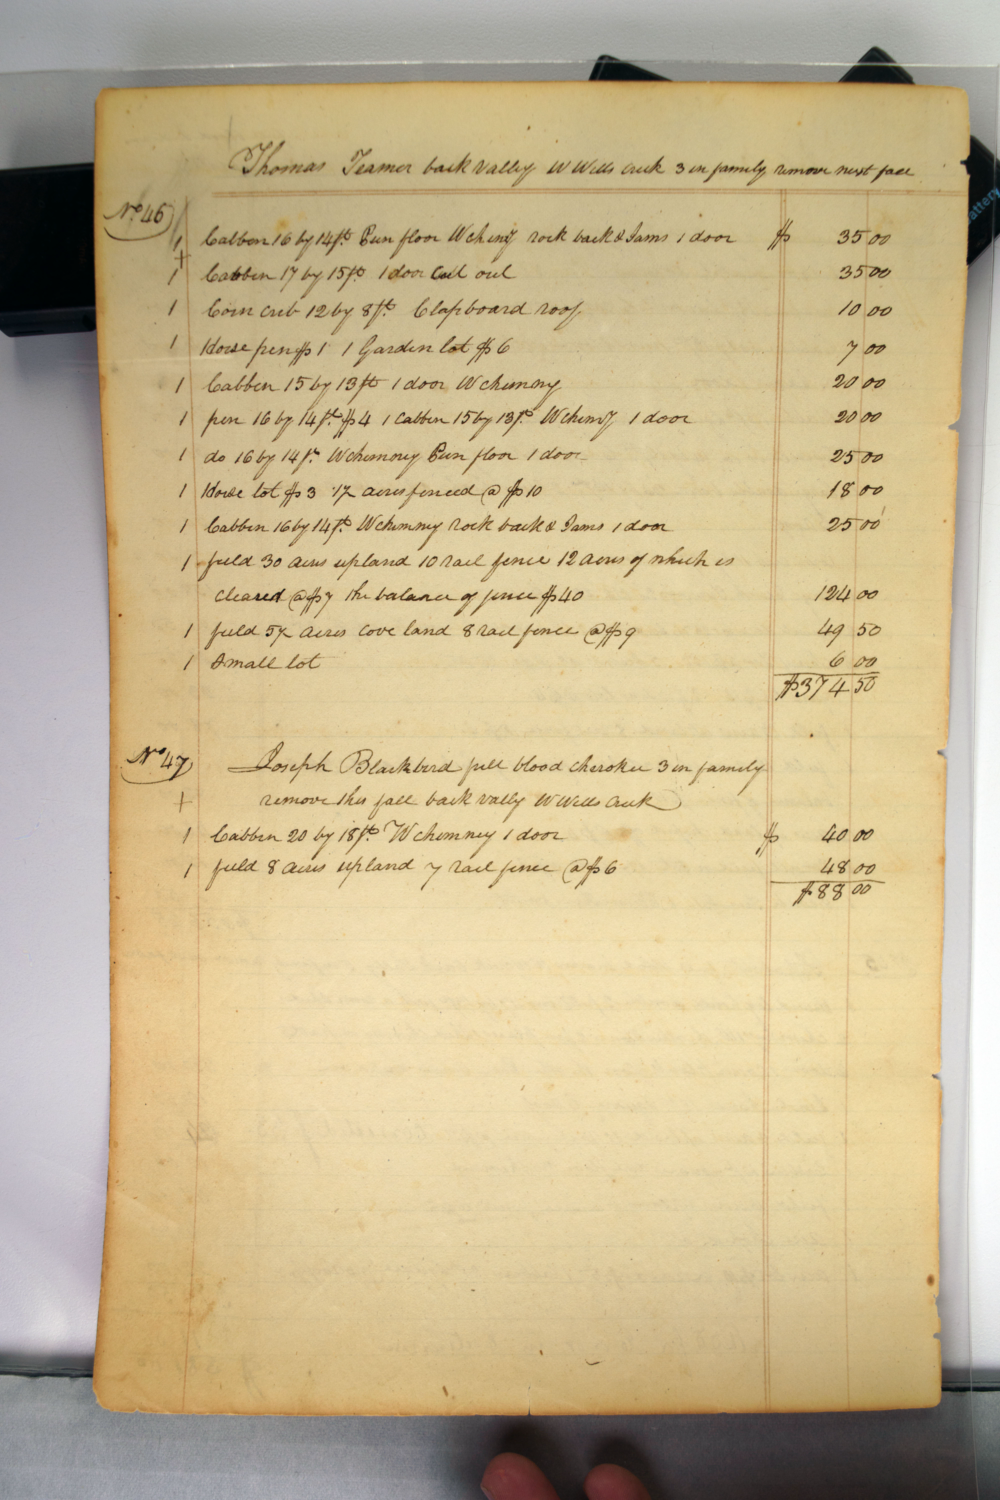 Thomas Teamer back vally W Wills creek 3 in family remove next fall
No 46
1 Cabben 16 by 14ft Pun floor W chimy rock back & Jams 1 door $ 35 00
1 Cabben 17 by 15ft 1 door Cut out 35 00
1 Corn crib 12 by 8ft Clapboard roof 10 00
1 Horse pen $1 1 Garden lot $6 7 00
1 Cabben 15 by 13ft 1 door W chimny 20 00
1 pen 16 by 14ft $4 1 Cabben 15 by 13ft W chimy 1 door 20 00
1 do 16 by 14ft W chimney Pun floor 1 door 25 00
1 Horse lot $3 1½ acres fenced @ $10 18 00
1 Cabben 16 by 14ft W chimney rock back & Jams 1 door 25 00
1 field 30 acres upland 10 rail fence 12 acres of which is
cleared @ $7 the balance of fence $40 124 00
1 field 5½ acres cove land 8 rail fence @ $9 49 50
1 Small lot 6 00
$374 50
No 47
Joseph Blackbird full blood cherokee 3 in family
remove this fall back vally W Wills Creek
1 Cabben 20 by 18ft W chimney 1 door $ 40 00
1 field 8 acres upland 7 rail fence @ $6 48 00
$88 00